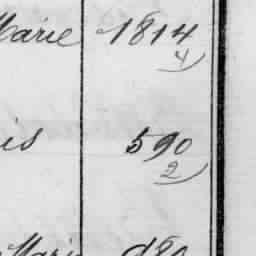 Marie 1814
4
is 590
2
Marie